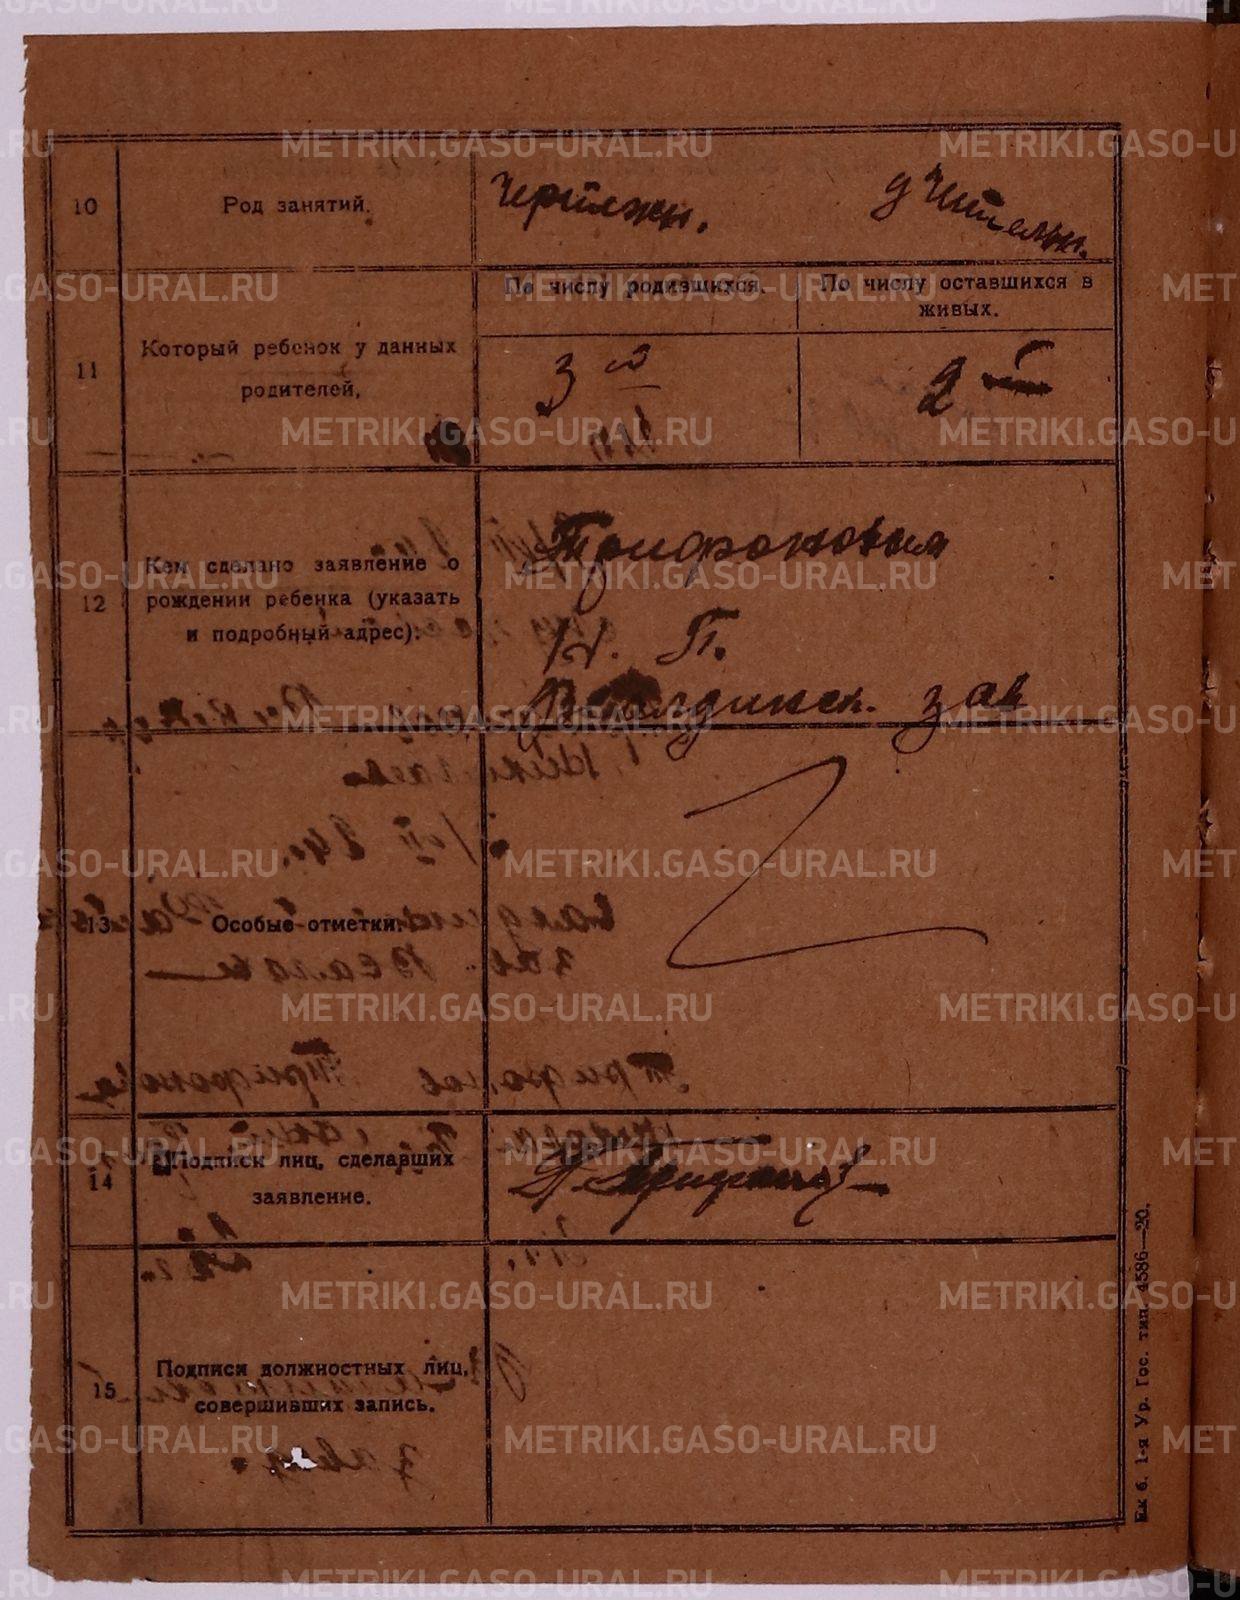 10
Род занятий.
Чертежн.
Учительн.
11
Который ребенок у данных
родителей.
По числу родившихся.
По числу оставшихся в
живых.
3 й
2 й
12
Кем сделано заявление о
рождении ребенка (указать
и подробный адрес):
Трифоновым
Н. П.
Валдинск. зав
13
Особые отметки:
14
Подписи лиц, сделавших
заявление.
Трифонов
15
Подписи должностных лиц,
совершивших запись.
Ек б. 1-я Ур. Гос. тип. 4586—20.
METRIKI.GASO-URAL.RU